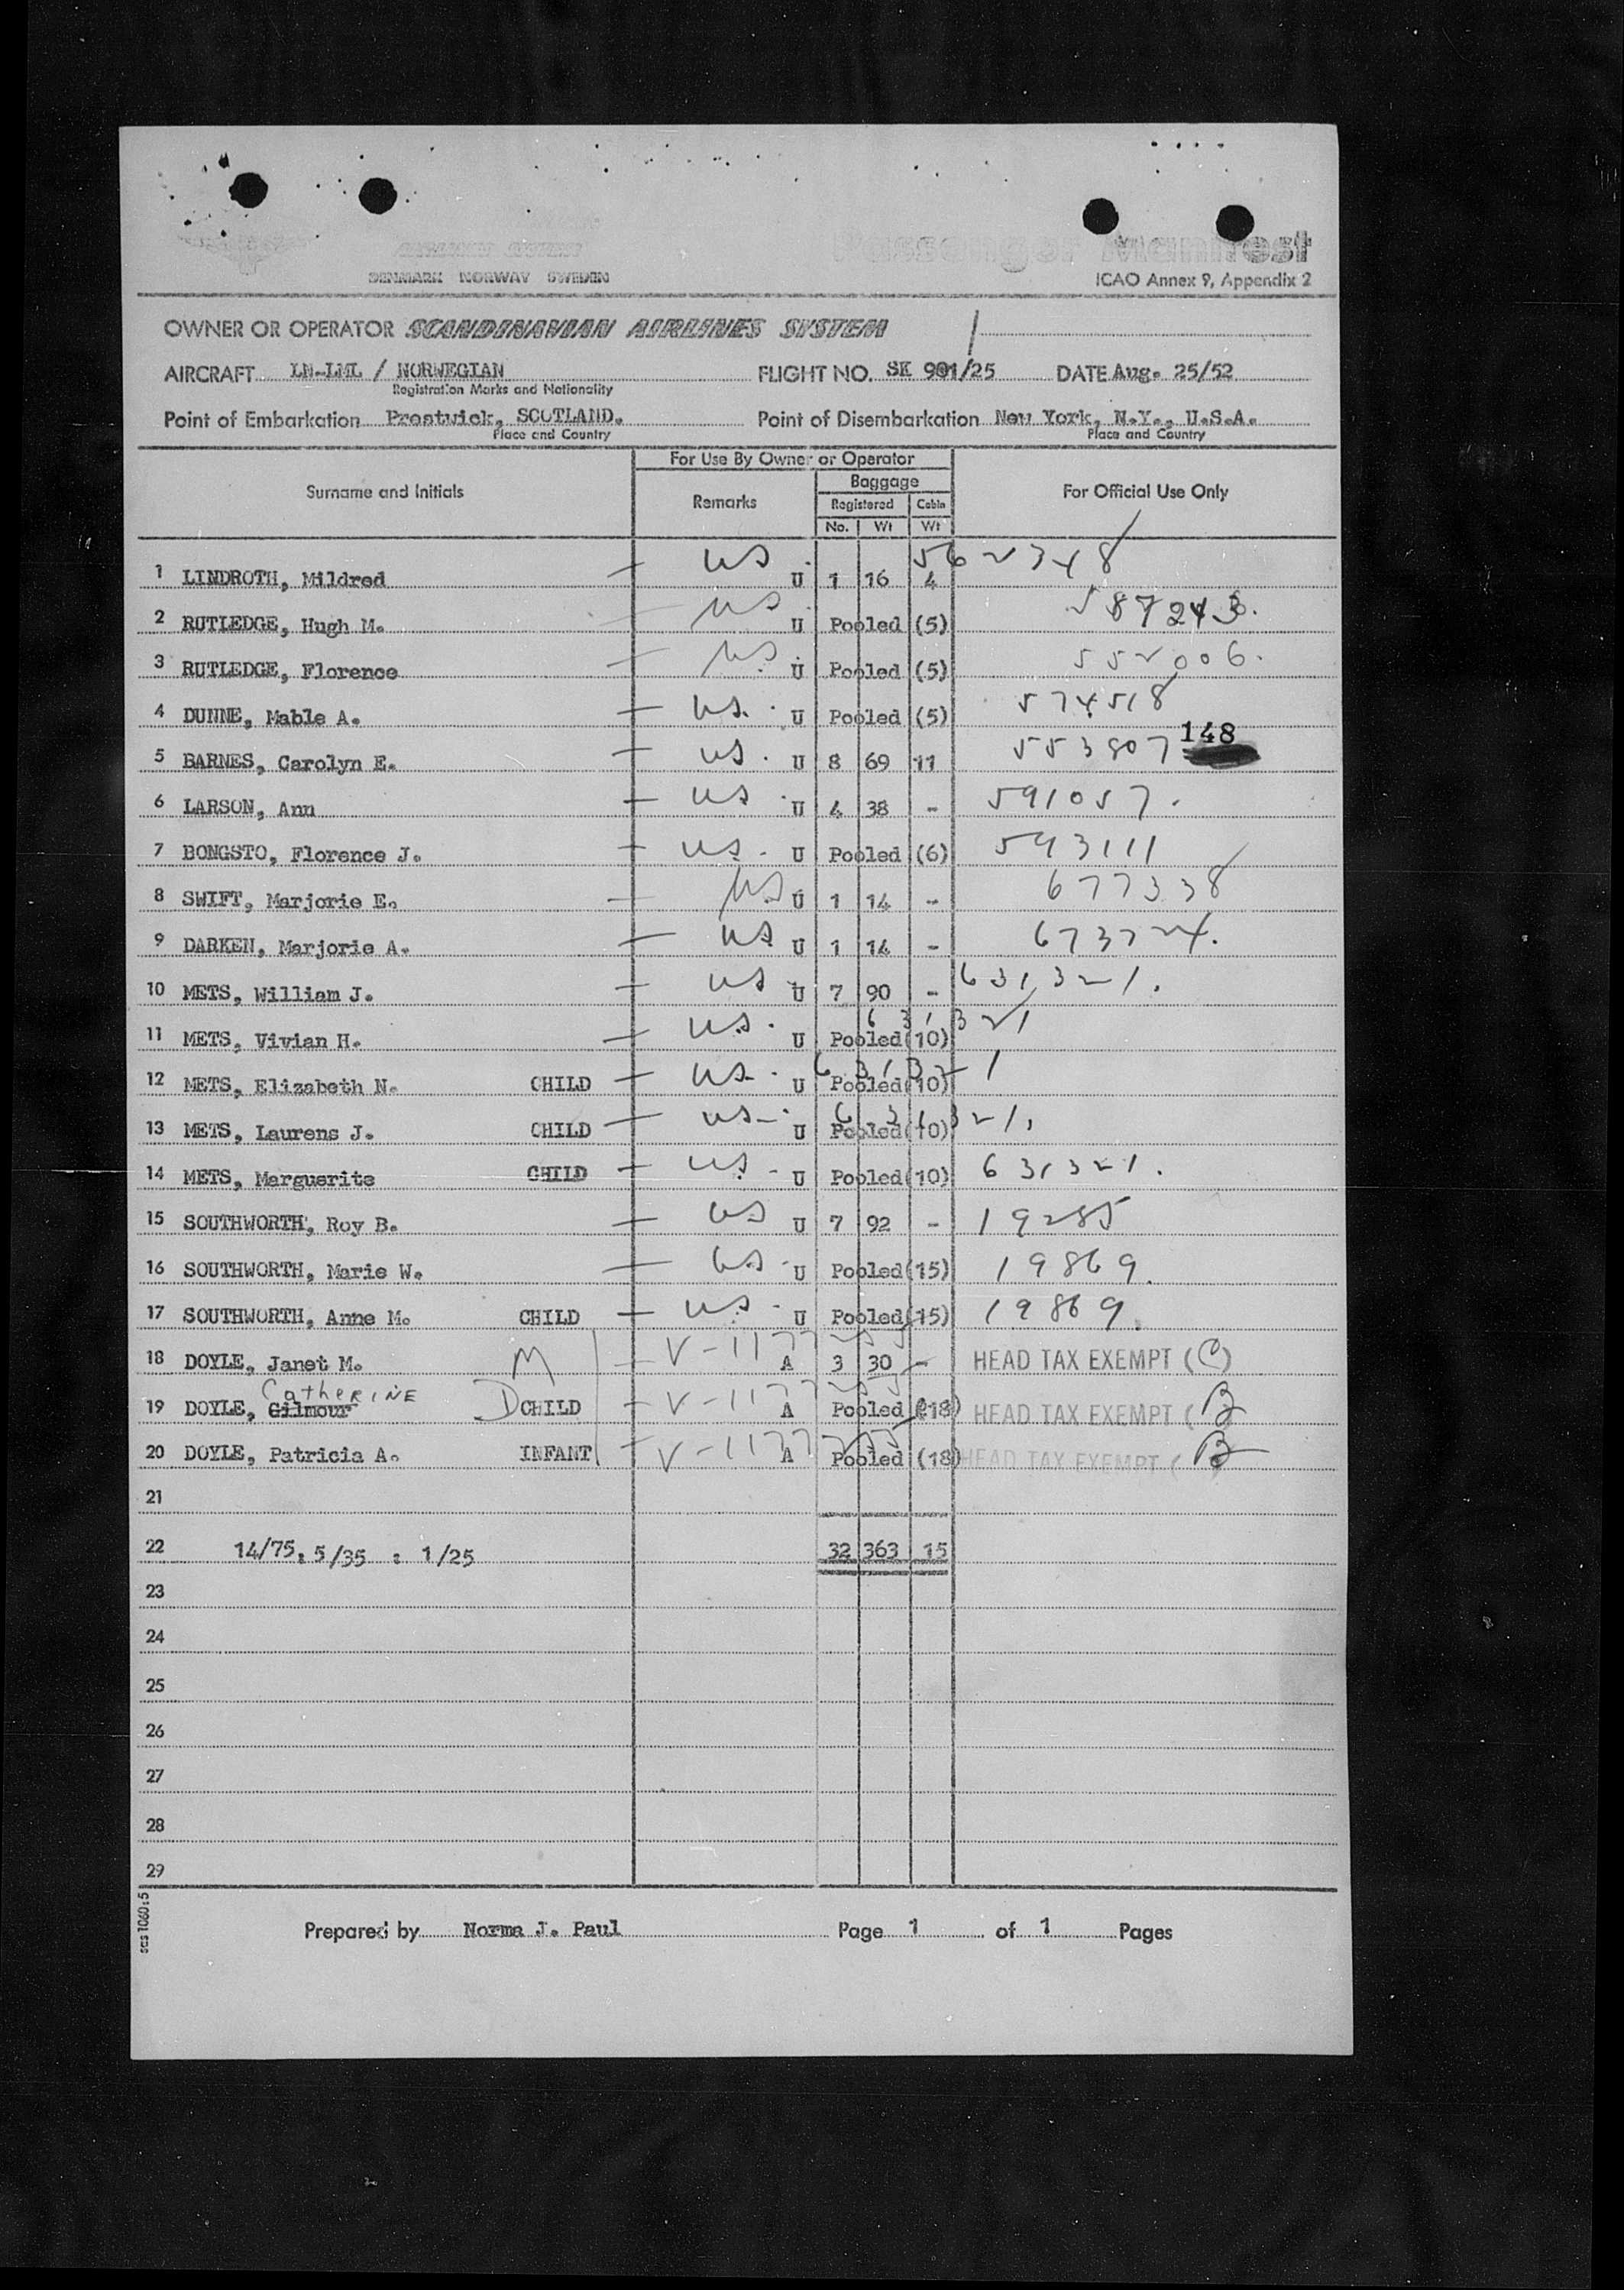 Passenger Manifest
DENMARK NORWAY SWEDEN
ICAO Annex 9, Appendix 2
OWNER OR OPERATOR SCANDINAVIAN AIRLINES SYSTEM
AIRCRAFT LN-LML / NORWEGIAN FLIGHT NO. SK 901/25 DATE Aug. 25/52
Registration Marks and Nationality
Point of Embarkation Prestwick, SCOTLAND. Point of Disembarkation New York, N.Y., U.S.A.
Place and Country Place and Country
For Use By Owner or Operator
Surname and Initials Remarks Baggage For Official Use Only
Registered Cabin
No. Wt Wt
1 LINDROTH, Mildred — US U 1 16 4 562348
2 RUTLEDGE, Hugh M. — US U Pooled (5) 587243.
3 RUTLEDGE, Florence — US U Pooled (5) 552006.
4 DUNNE, Mable A. — US. U Pooled (5) 574518
148
5 BARNES, Carolyn E. — US. U 8 69 11 553807
6 LARSON, Ann — US U 4 38 - 591057.
7 BONGSTO, Florence J. — US. U Pooled (6) 593111
8 SWIFT, Marjorie E. — US U 1 14 - 677338
9 DARKEN, Marjorie A. — US U 1 14 - 673724.
10 METS, William J. — US U 7 90 - 631321.
11 METS, Vivian H. — US. U Pooled (10) 631321
12 METS, Elizabeth N. CHILD — US. U Pooled (10) 631321
13 METS, Laurens J. CHILD — US. U Pooled (10) 631321.
14 METS, Marguerite CHILD — US. U Pooled (10) 631321.
15 SOUTHWORTH, Roy B. — US U 7 92 - 19285
16 SOUTHWORTH, Marie W. — US U Pooled (15) 19869.
17 SOUTHWORTH, Anne M. CHILD — US U Pooled (15) 19869.
18 DOYLE, Janet M. M — V-1177255 A 3 30 - HEAD TAX EXEMPT (C)
Catherine
19 DOYLE, Gilmour D CHILD — V-1177255 A Pooled (18) HEAD TAX EXEMPT (B
20 DOYLE, Patricia A. INFANT — V-1177255 A Pooled (18) HEAD TAX EXEMPT (B
21
22 14/75. 5/35 : 1/25 32 363 15
23
24
25
26
27
28
29
sas 1060:5
Prepared by Norma J. Paul Page 1 of 1 Pages